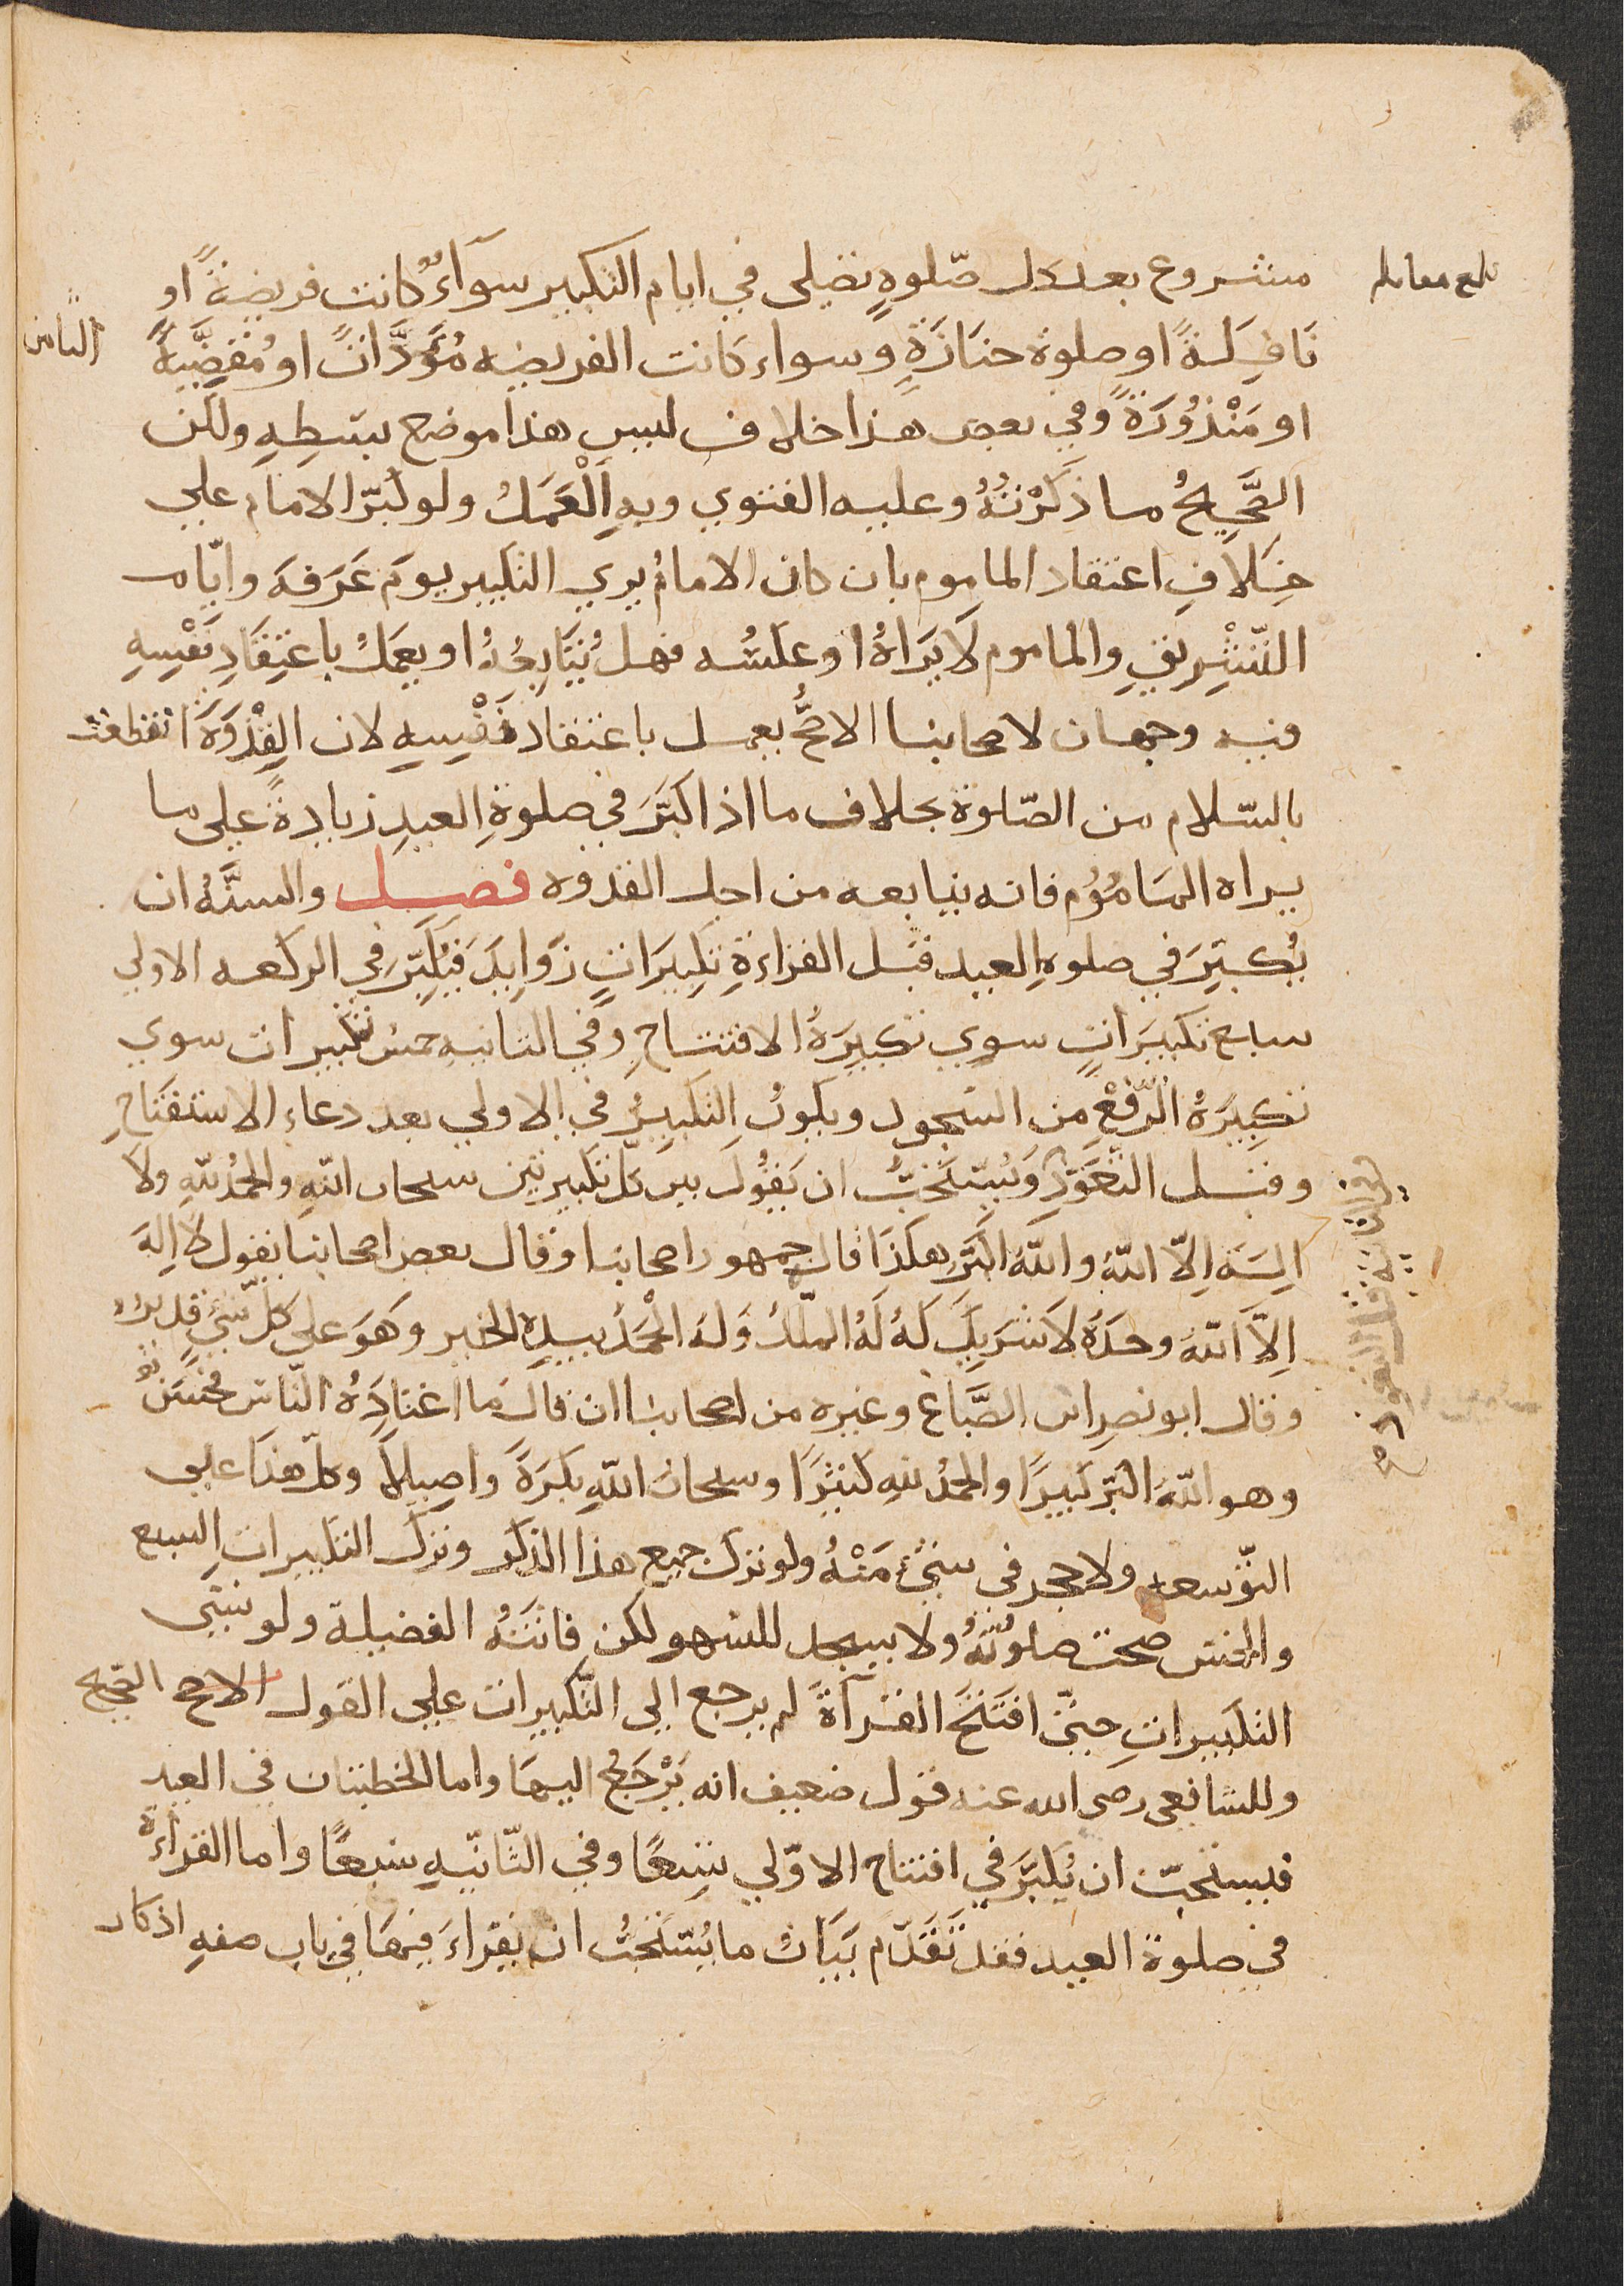 بلغ مقابله
الثامن
مشروع بعد كل صلوةٍ تصلى في ايام التكبير سوآءٌ كانت فريضةً او
نَافِلَةً او صلوة جنَازَةٍ وسواء كانت الفريضه مُؤَدَّاتً او مُقضِيَّةً
او مَنْذُورَةً وفي بعض هذا خلاف ليس هذا موضع بسْطِهِ ولكن
الصَّحِيحُ ما ذكَرْتُهُ وعليه الفتوي وبهِ الْعَمَلُ ولو كبّر الامام علي
خِلافِ اعتقاد الماموم بان كان الامامُ يري التكبير يومَ عَرَفهَ وايّام
التّشْرِيقِ والماموم لَا يَرَاهُ او عكسُه فهل يُتَابِعُهُ او يعمَلُ باعتِقَادِ نَفْسِهِ
فيه وجهان لاصحابنا الاصَحُّ يعمل باعتقاد نَفْسِهِ لان القِدْوَةَ انقطعت
بالسّلام من الصّلوة بخلاف ما اذا كبَّرَ في صلوةِ العيدِ زيادةً على ما
يراه المَامُوُم فانه يتابعه من اجل القدوه فصل والسنَّهُ ان
يُكبِّرَ في صلوهِ العيد قبل القراءةِ تكبِيرَاتٍ زَوايِدَ فيُكَبّرَ في الركعه الاولي
سبع تكبيَراتٍ سوي تكبيِرَةُ الافتتاحِ وفي الثانيهِ خمسُ تكبيرات سوي
تكبيِرَهُ الرّفْعِ من السّجود ويكونُ التكبيِرُ في الاولي بعد دعاءِ الاستفتَاحِ
وقبل التعَوّذِ ويُستَحَبُّ ان يَقُولَ بين كل تكبيرتين سبحان اللهِ والحمدُ للهِ ولا
الِهَ اِلاّ اللهُ واللهُ اكبَر هكَذَا قال جمهور اصحابنا وقال بعض اصحابنا يقول لا اِلهَ
اِلاّ اللهُ وحدَهُ لَا شَريِكَ لَهُ لَهُ الملْكُ وَلهُ الْحَمْدُ بيدِهِ الخير وَهوَ على كلّ شيءٍ قدير
وقال ابو نصر ابن الصَّبَّاغ وغيره من اصحابنا ان قالَ مَا اعتَادَهُ النّاس فحَسَنٌ
وهو اللهُ اكبَر كبيرًا والحمدُ للهِ كثيرًا وسبحانَ اللهِ بكرَةً واصِيلاً وكلّ هذَا على
التّوسعه ولا حجر في شيْءٍ مَنْهُ ولو ترك جميع هذا الذكر وترك التكبيراتِ السبع
والخمس صحت صلوتُهُ ولا يسجد للسّهو لكن فاتَتْهُ الفضيلة ولو نسي
التكبيراتِ حتىّ افتَتَحَ القرآةَ لم يرجع الى التكبيرات علي القول الاصح الصحيح
وللشافعى رضى الله عنه قول ضعيف انه يَرْجَعُ اليهَا واما الخطبتان في العيد
فيستحبّ ان يُكبّرَ في افتتاح الاوّلي تِسعًا وفي الثّانيّهِ سَبعًا واما القراءة
في صلوة العيد فقد تقَدّمَ بَيَانُ ما يُستَحَبُّ ان يَقرَاءَ فيهَا في باب صفهِ اذكار